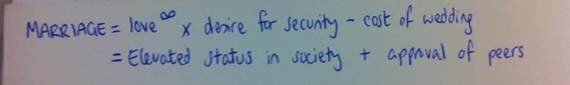 MARRIAGE = love^∞ x desire for security - cost of wedding
= Elevated status in society + approval of peers